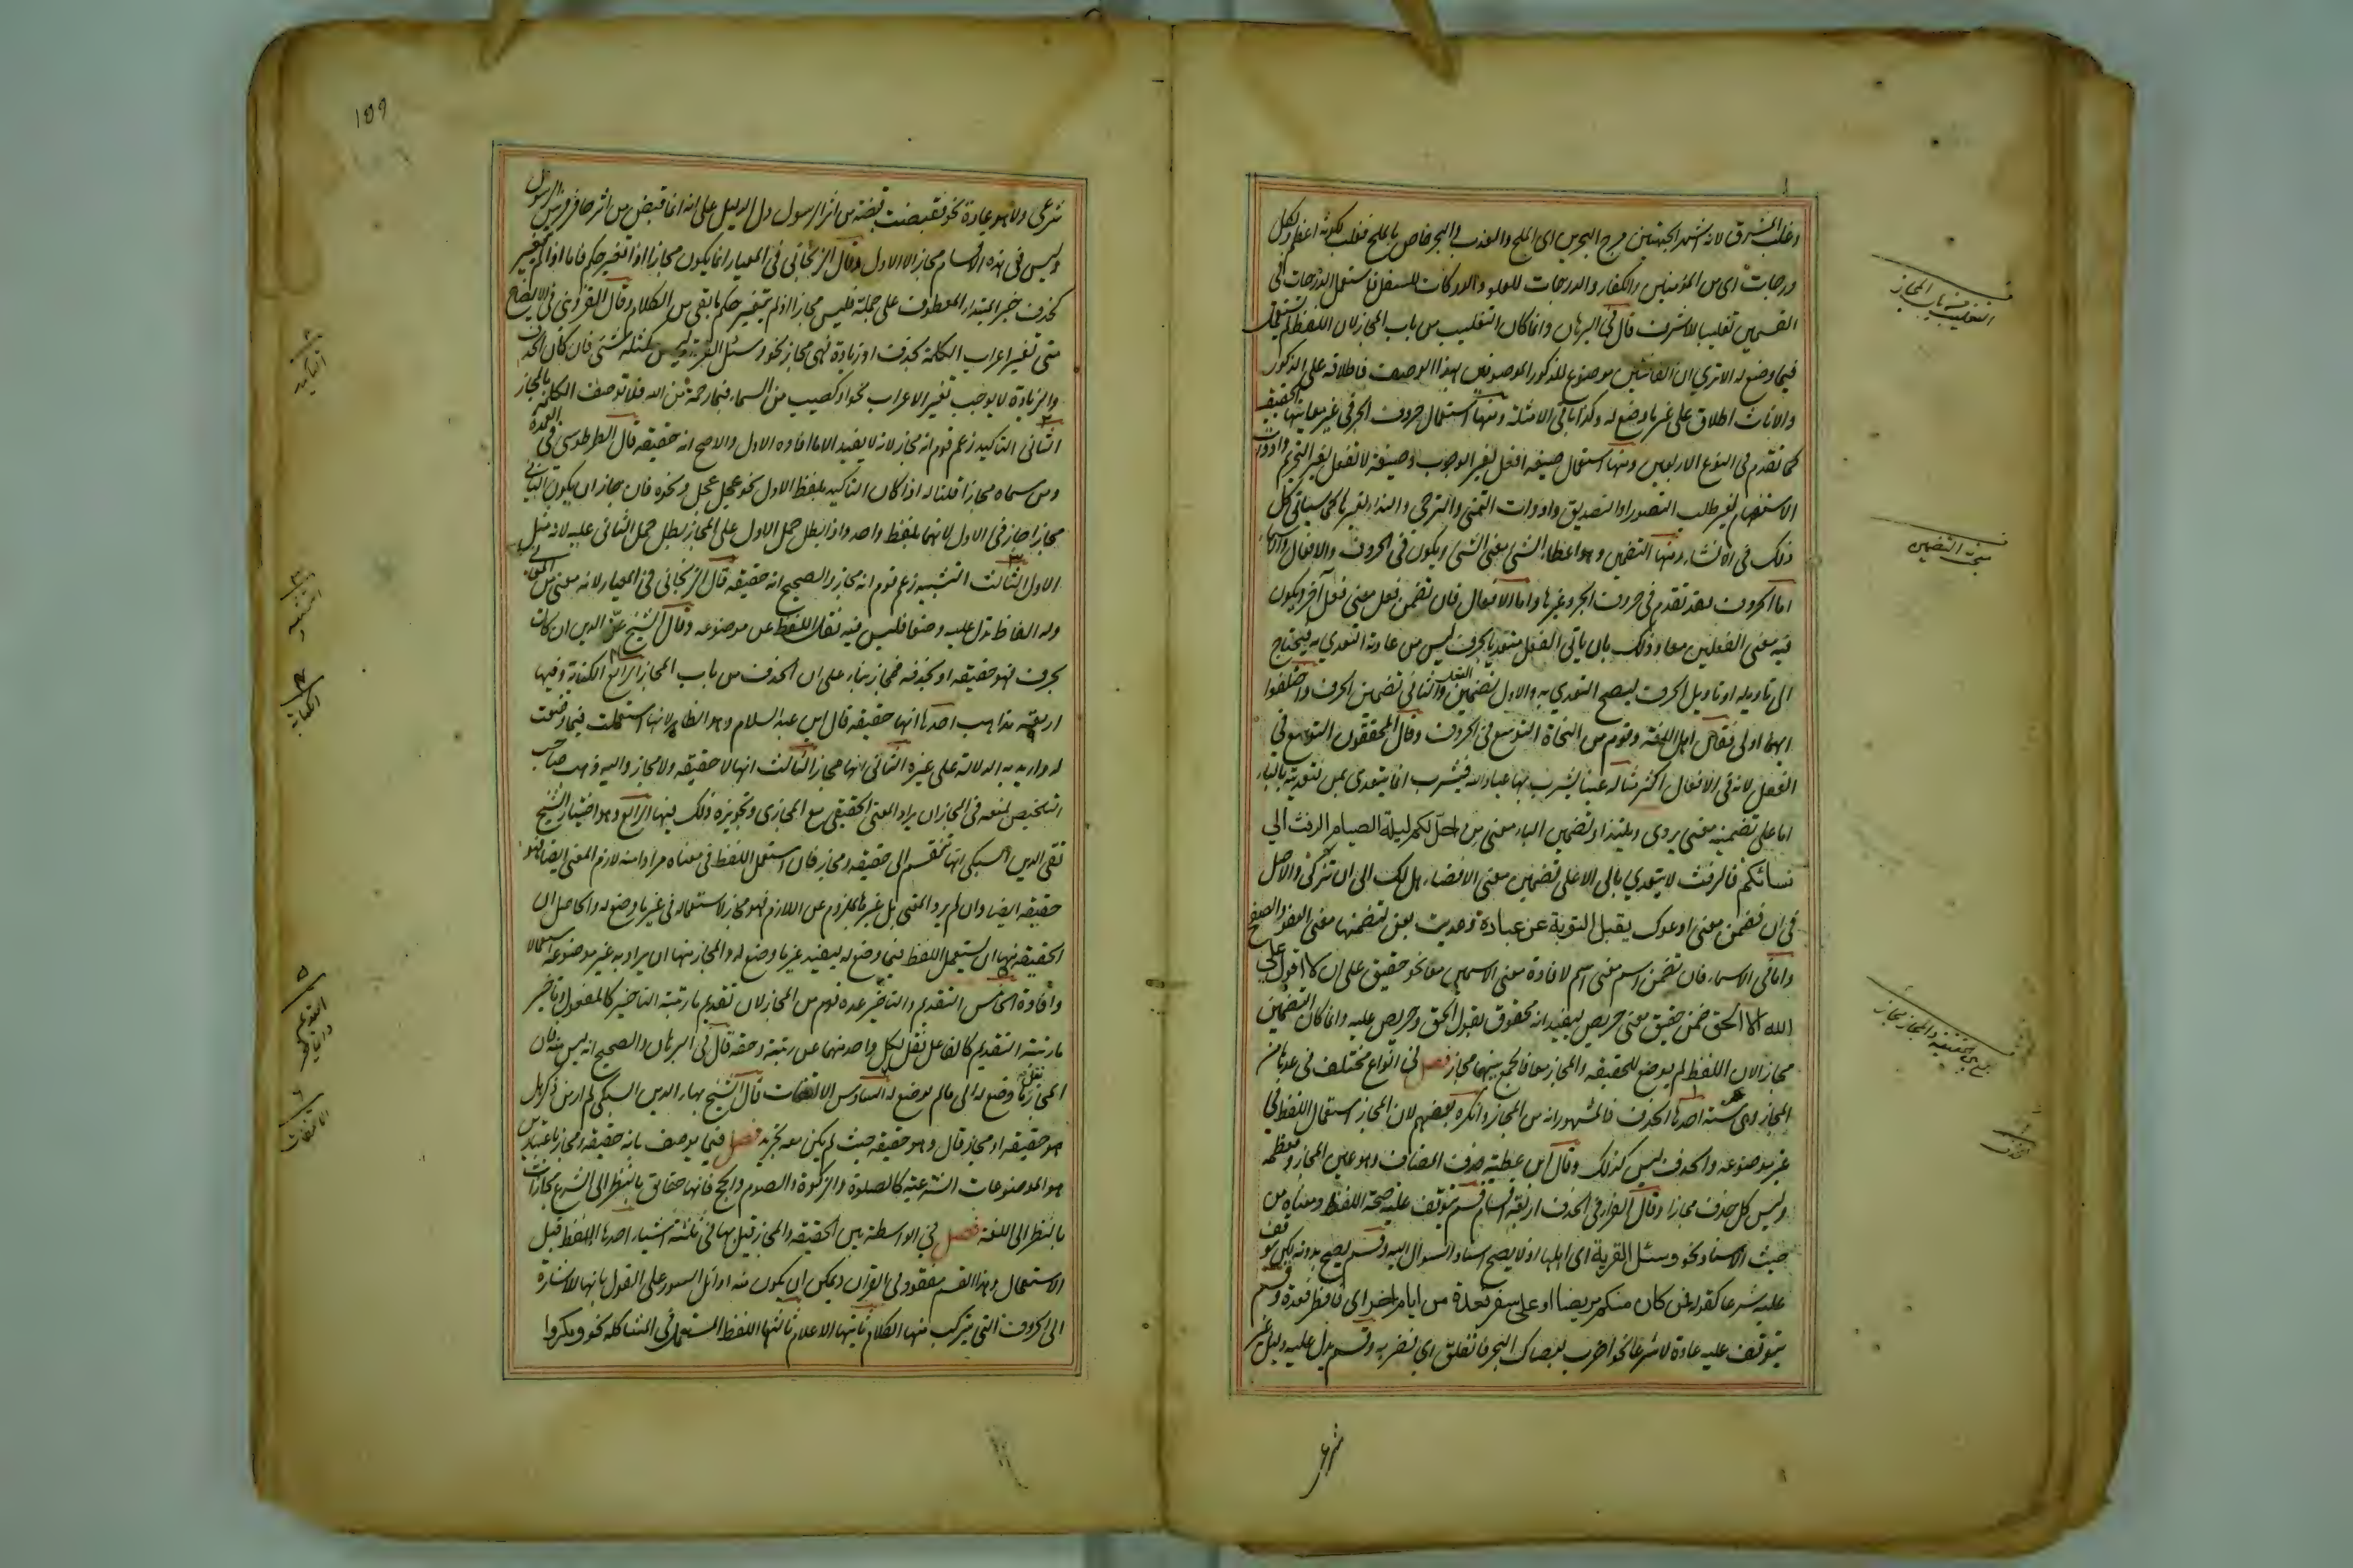 وغلب المشرق لانه اشهر الجهتين مرج البحرين اى الملح والعذب والبحر خاص بالملح فغلب لكونه اعظم ولكل
درجات اى من المؤمنين والكفار والدرجات للعلو والدركات للسفل فاستعمل الدرجات فى
القسمين تغليبا للاشرف قال فى البرهان وانما كان التغليب من باب المجاز لان اللفظ لم يستعمل
فيما وضع له الا ترى ان القانتين موضوع للذكور الموصوفين بهذا الوصف فاطلاقه على الذكور
والاناث اطلاق على غير ما وضع له وكذا باقى الامثلة ومنها استعمال حروف الجر فى غير معانيها الحقيقية
كما تقدم فى النوع الاربعين ومنها استعمال صيغة افعل لغير الوجوب وصيغة لا تفعل لغير التحريم وادوات
الاستفهام لغير طلب التصور او التصديق وادوات التمنى والترجى والنداء لغيرها كما سياتى كل
ذلك فى الانشاء ومنها التضمين وهو اعطاء الشئ معنى الشئ ويكون فى الحروف والافعال والاسماء
اما الحروف فقد تقدم فى حروف الجر وغيرها واما الافعال فان تضمن فعل معنى فعل آخر ويكون
فيه معنى الفعلين معا وذلك بان ياتى الفعل متعديا بحرف ليس من عادته التعدى به فيحتاج
الى تاويله او تاويل الحرف ليصح التعدى به والاول تضمين الفعل والثانى تضمين الحرف واختلفوا
ايهما اولى فقال اهل اللغة وقوم من النحاة التوسع فى الحروف وقال المحققون التوسع فى
الفعل لانه فى الافعال اكثر مثاله عينا يشرب بها عباد الله فيشرب انما يتعدى بمن فتعديته بالباء
اما على تضمينه معنى يروى ويلتذ او تضمين الباء معنى من احل لكم ليلة الصيام الرفث الى
نسائكم فالرفث لا يتعدى بالى الا على تضمين معنى الافضاء هل لك الى ان تزكى والاصل
فى ان فضمن معنى ادعوك يقبل التوبة عن عباده فعديت بعن لتضمنها معنى العفو والصفح
واما فى الاسماء فان تضمن اسم معنى اسم لافادة معنى الاسمين معا نحو حقيق على ان لا اقول على
الله الا الحق ضمن حقيق معنى حريص ليفيد انه محقوق بقول الحق وحريص عليه وانما كان التضمين
مجازا لان اللفظ لم يوضع للحقيقة والمجاز معا فالجمع بينهما مجاز فصل فى انواع مختلف فى عدها من
المجاز وهى ستة احدها الحذف فالمشهور انه من المجاز وانكره بعضهم لان المجاز استعمال اللفظ فى
غير موضوعه والحذف ليس كذلك وقال ابن عطية حذف المضاف وهو عين المجاز ومعظمه
وليس كل حذف مجازا وقال الفراء فى الحذف اربعة اقسام قسم يتوقف عليه صحة اللفظ ومعناه من
حيث الاسناد نحو وسئل القرية اى اهلها اذ لا يصح اسناد السوال اليه وقسم يصح بدونه لكن يتوقف
عليه شرعا كقوله فمن كان منكم مريضا او على سفر فعدة من ايام اخر اى فافطر فعدة وقسم
يتوقف عليه عادة لا شرعا نحو اضرب بعصاك البحر فانفلق اى فضربه وقسم يدل عليه دليل غير
شرعى
التغليب من باب المجاز
مبحث التضمين
الحذف
١٥٦
شرعى ولا هو عادة نحو فقبضت قبضة من اثر الرسول دل الدليل على انه انما قبض من اثر حافر فرس الرسول
وليس فى هذه الاقسام مجاز الا الاول وقال الزنجانى فى المعيار انما يكون مجازا اذا تغير حكم فاما اذا لم يتغير
كحذف خبر المبتدا المعطوف على جملة فليس مجازا اذ لم يتغير حكم ما بقى من الكلام وقال القزوينى فى الايضاح
متى تغير اعراب الكلمة بحذف او زيادة فهى مجاز نحو وسئل القرية ليس كمثله شئ فان كان الحذف
والزيادة لا يوجب تغير الاعراب نحو او كصيب من السماء فبما رحمة من الله فلا توصف الكلمة بالمجاز
الثانى التاكيد زعم قوم انه مجاز لانه لا يفيد الا ما افاده الاول والاصح انه حقيقة قال الطرطوسى فى العمدة
ومن سماه مجازا قلنا له اذا كان التاكيد بلفظ الاول نحو عجل عجل ونحوه فان جاز ان يكون الثانى
مجازا جاز فى الاول لانهما بلفظ واحد واذا بطل حمل الاول على المجاز بطل حمل الثانى عليه لانه مثل
الاول الثالث التشبيه زعم قوم انه مجاز والصحيح انه حقيقة قال الزنجانى فى المعيار لانه معنى من المعانى
وله الفاظ تدل عليه وضعا فليس فيه نقل اللفظ عن موضوعه وقال الشيخ عز الدين ان كان
بحرف فهو حقيقة او بحذفه فمجاز بناء على ان الحذف من باب المجاز الرابع الكناية وفيها
اربعة مذاهب احدها انها حقيقة قال ابن عبد السلام وهو الظاهر لانها استعملت فيما وضعت
له واريد به الدلالة على غيره الثانى انها مجاز الثالث انها لا حقيقة ولا مجاز واليه ذهب صاحب
التلخيص لمنعه فى المجاز ان يراد المعنى الحقيقى مع المجازى وتجويزه ذلك فيها الرابع وهو اختيار الشيخ
تقى الدين السبكى انها تنقسم الى حقيقة ومجاز فان استعمل اللفظ فى معناه مرادا منه لازم المعنى ايضا فهو
حقيقة ايضا وان لم يرد المعنى بل عبر بالملزوم عن اللازم فهو مجاز لاستعماله فى غير ما وضع له والحاصل ان
الحقيقة منها ان يستعمل اللفظ فيما وضع له ليفيد غير ما وضع له والمجاز منها ان يراد به غير موضوعه استعمالا
وافادة الخامس التقديم والتاخير عده قوم من المجاز لان تقديم ما رتبته التاخير كالمفعول وتاخير
ما رتبته التقديم كالفاعل نقل لكل واحد منهما عن رتبته وحقه قال فى البرهان والصحيح انه ليس منه فان
المجاز نقل ما وضع له الى ما لم يوضع له السادس الالتفات قال الشيخ بهاء الدين السبكى لم ار من ذكر هل
هو حقيقة او مجاز قال وهو حقيقة حيث لم يكن معه تجريد فصل فيما يوصف بانه حقيقة ومجاز باعتبارين
هو الموضوعات الشرعية كالصلوة والزكوة والصوم والحج فانها حقائق بالنظر الى الشرع مجازات
بالنظر الى اللغة فصل فى الواسطة بين الحقيقة والمجاز قيل بها فى ثلثة اشياء احدها اللفظ قبل
الاستعمال وهذا القسم مفقود فى القرآن ويمكن ان يكون منه اوائل السور على القول بانها للاشارة
الى الحروف التى يتركب منها الكلام ثانيها الاعلام ثالثها اللفظ المستعمل فى المشاكلة نحو ومكروا
٢
التاكيد
٣
التشبيه
٤
الكناية
٥
التقديم
والتاخير
٦
الالتفات